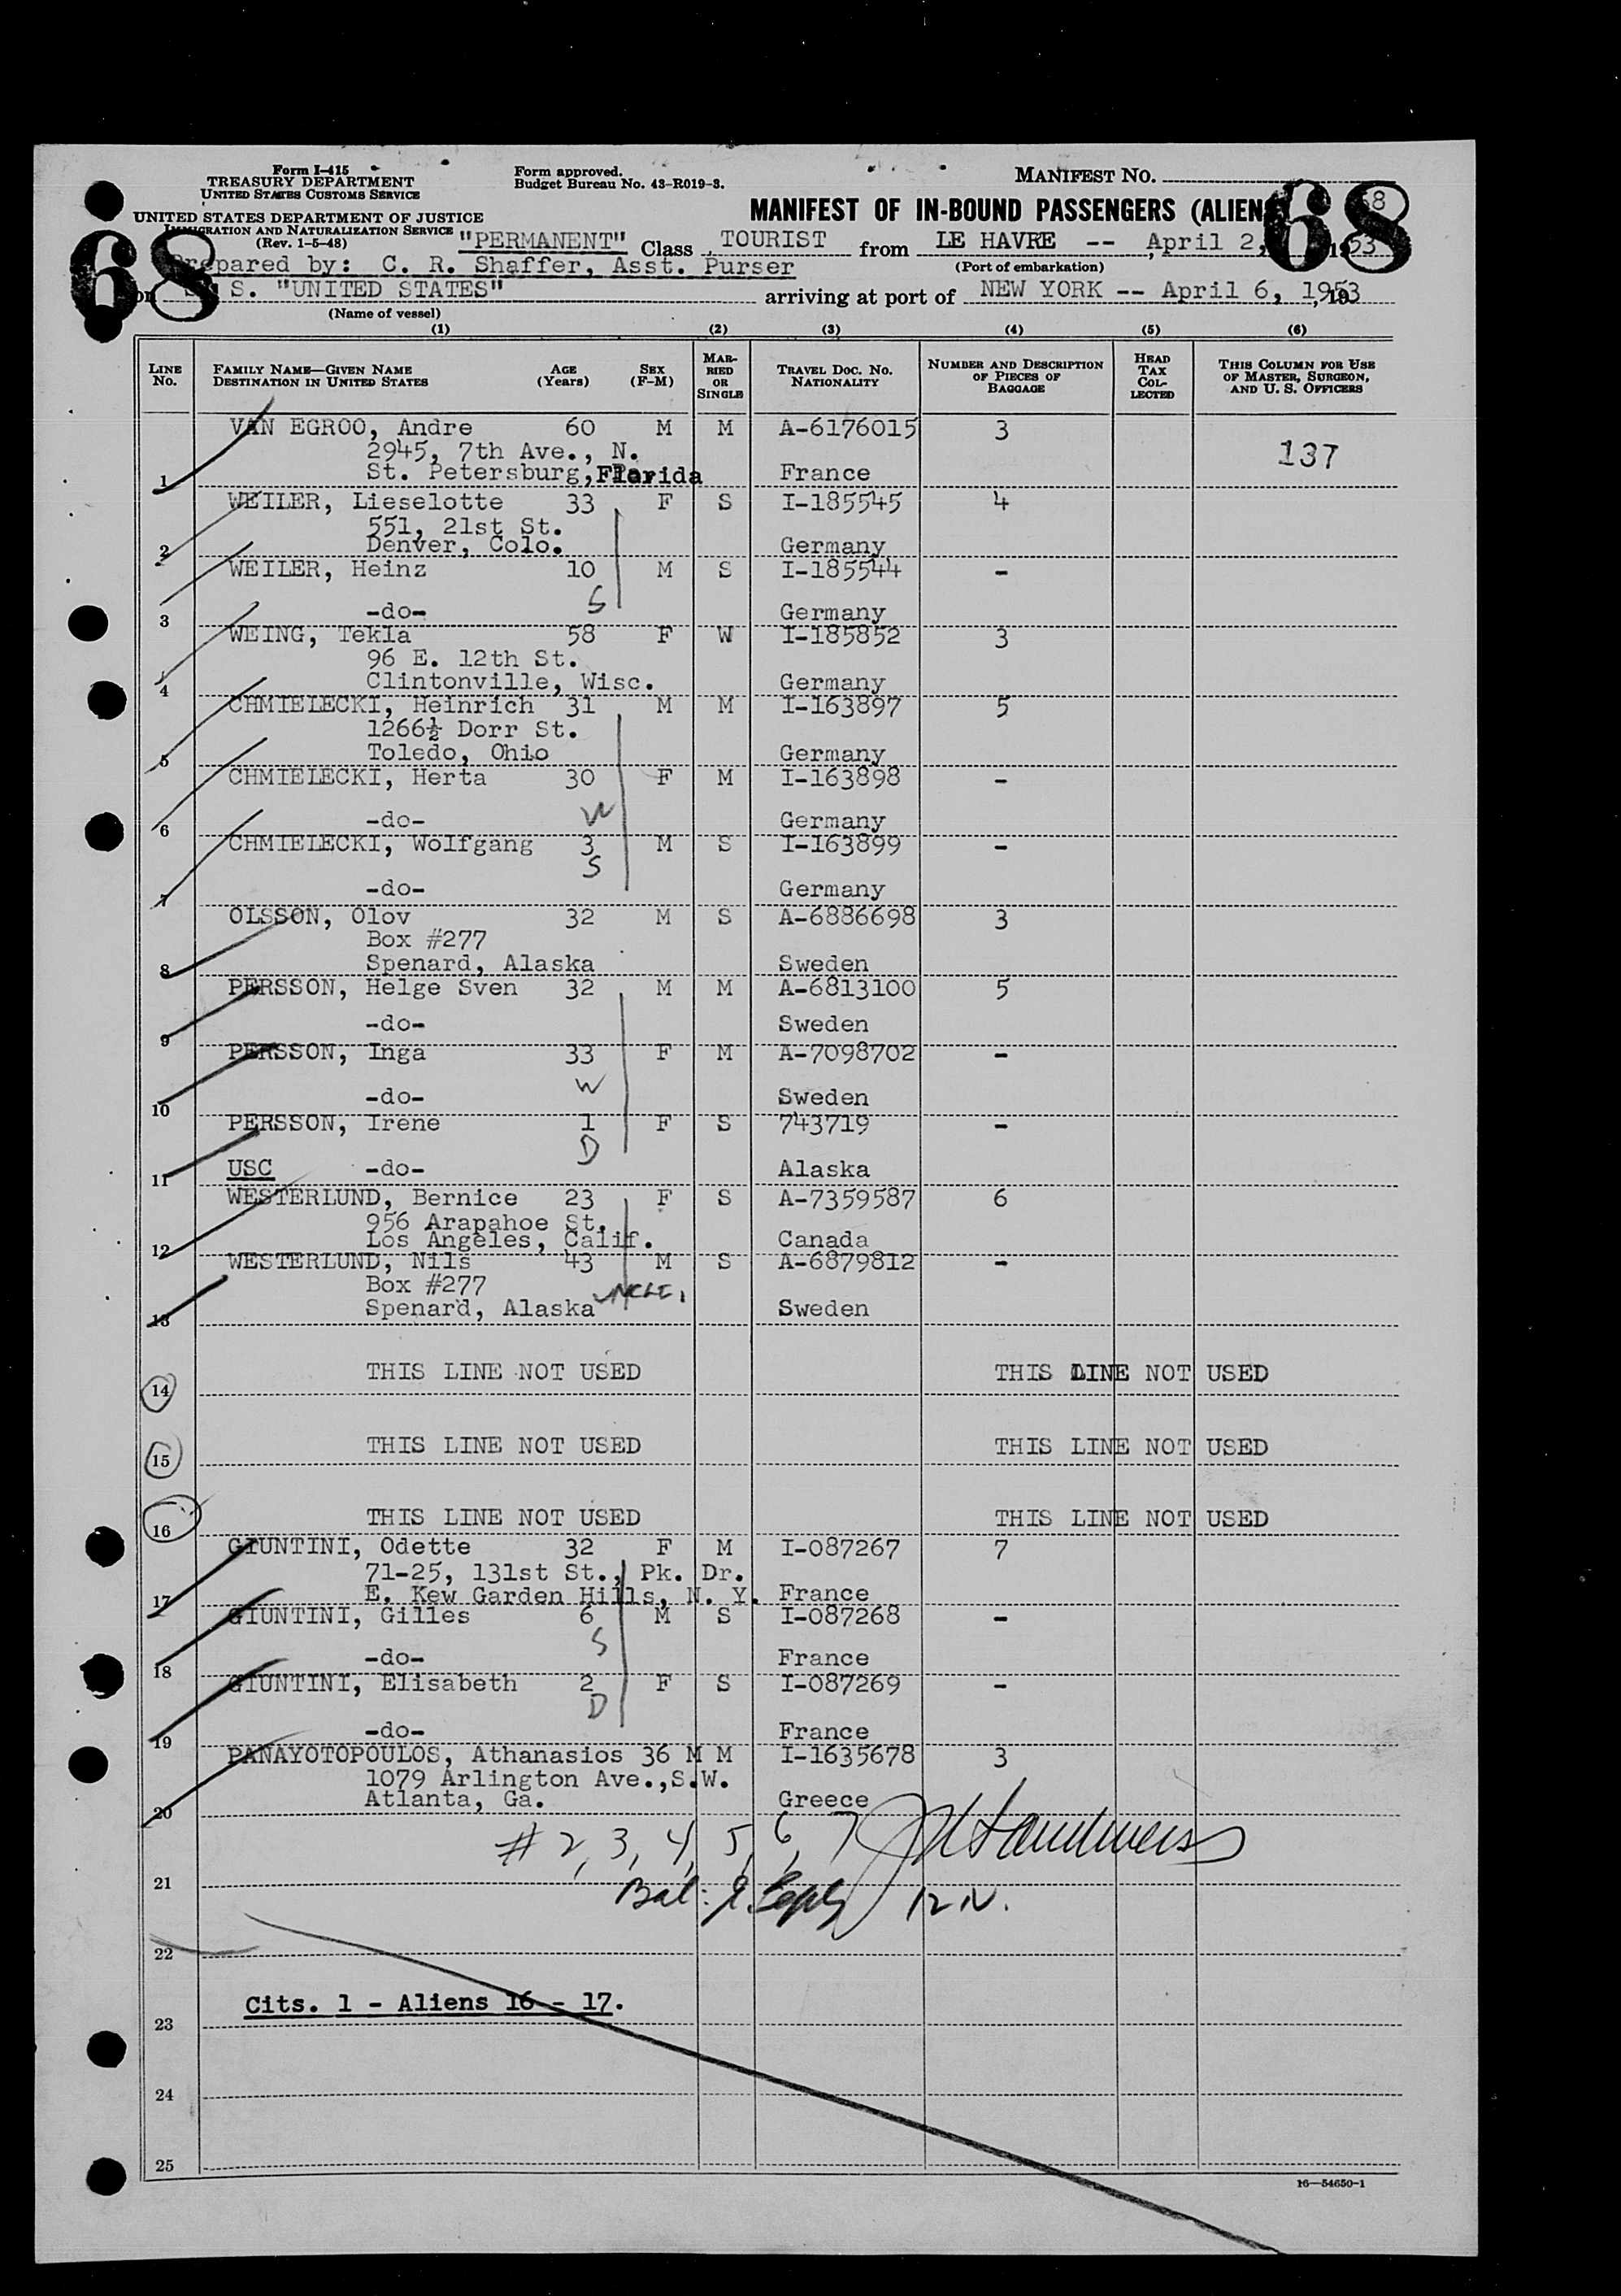 Form I-415
TREASURY DEPARTMENT
UNITED STATES CUSTOMS SERVICE
Form approved.
Budget Bureau No. 43-R019-3.
MANIFEST NO.
68
UNITED STATES DEPARTMENT OF JUSTICE
IMMIGRATION AND NATURALIZATION SERVICE
(Rev. 1-5-48)
MANIFEST OF IN-BOUND PASSENGERS (ALIEN
68
68
"PERMANENT" Class TOURIST from LE HAVRE -- April 2, 1953
Prepared by: C. R. Shaffer, Asst. Purser
(Port of embarkation)
on S. S. "UNITED STATES" arriving at port of NEW YORK -- April 6, 1953
(Name of vessel)
(1) (2) (3) (4) (5) (6)
LINE NO. FAMILY NAME—GIVEN NAME DESTINATION IN UNITED STATES AGE (Years) SEX (F-M) MARRIED OR SINGLE TRAVEL DOC. NO. NATIONALITY NUMBER AND DESCRIPTION OF PIECES OF BAGGAGE HEAD TAX COLLECTED THIS COLUMN FOR USE OF MASTER, SURGEON, AND U. S. OFFICERS
VAN EGROO, Andre 60 M M A-6176015 3
2945, 7th Ave., N. 137
1 St. Petersburg, Florida France
WEILER, Lieselotte 33 F S I-185545 4
551, 21st St.
2 Denver, Colo. Germany
WEILER, Heinz 10 M S I-185544 -
S
3 -do- Germany
WEING, Tekla 58 F W I-185852 3
96 E. 12th St.
4 Clintonville, Wisc. Germany
CHMIELECKI, Heinrich 31 M M I-163897 5
1266½ Dorr St.
5 Toledo, Ohio Germany
CHMIELECKI, Herta 30 F M I-163898 -
W
6 -do- Germany
CHMIELECKI, Wolfgang 3 M S I-163899 -
S
7 -do- Germany
OLSSON, Olov 32 M S A-6886698 3
Box #277
8 Spenard, Alaska Sweden
PERSSON, Helge Sven 32 M M A-6813100 5
9 -do- Sweden
PERSSON, Inga 33 F M A-7098702 -
W
10 -do- Sweden
PERSSON, Irene 1 F S 743719 -
D
11 USC -do- Alaska
WESTERLUND, Bernice 23 F S A-7359587 6
956 Arapahoe St.
12 Los Angeles, Calif. Canada
WESTERLUND, Nils 43 M S A-6879812 -
Box #277
UNCLE
13 Spenard, Alaska Sweden
14 THIS LINE NOT USED THIS LINE NOT USED
15 THIS LINE NOT USED THIS LINE NOT USED
16 THIS LINE NOT USED THIS LINE NOT USED
GIUNTINI, Odette 32 F M I-087267 7
71-25, 131st St., Pk. Dr.
17 E. Kew Garden Hills, N. Y. France
GIUNTINI, Gilles 6 M S I-087268 -
S
18 -do- France
GIUNTINI, Elisabeth 2 F S I-087269 -
D
19 -do- France
PANAYOTOPOULOS, Athanasios 36 M M I-1635678 3
1079 Arlington Ave.,S.W.
20 Atlanta, Ga. Greece
# 2, 3, 4, 5, 6, 7
21 Bal:
22
Cits. 1 - Aliens 16 - 17.
23
24
25
16—54650-1